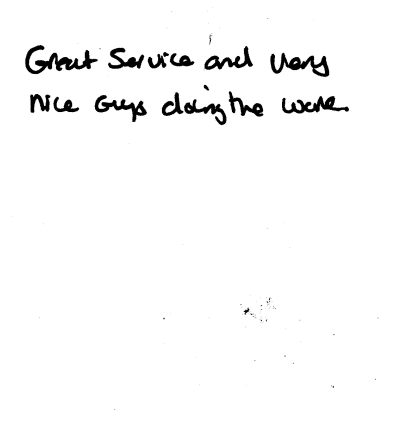 Great Service and Very
nice Guys doing the work.